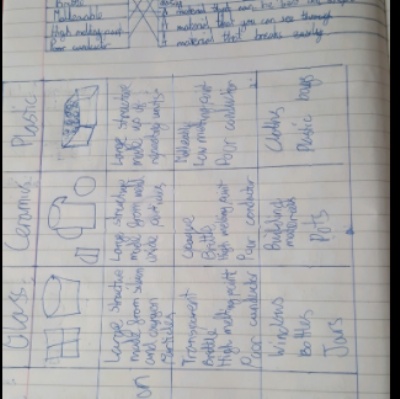 Brittle
Malleable
High melting point
Poor conductor
A material that can be bent into shape
A material that you can see through
A material that breaks easily
Plastic
Large structure
made up of
repeating units
Malleable
Low melting point
Poor conductor
Cloths
Plastic bags
Ceramic
Large structure
made from
Brittle
High melting point
Poor conductor
Building
materials
Pots
Glass
Large structure
made from silicon
and oxygen
particles
Transparent
Brittle
High melting point
Poor conductor
Windows
Bottles
Jars
on